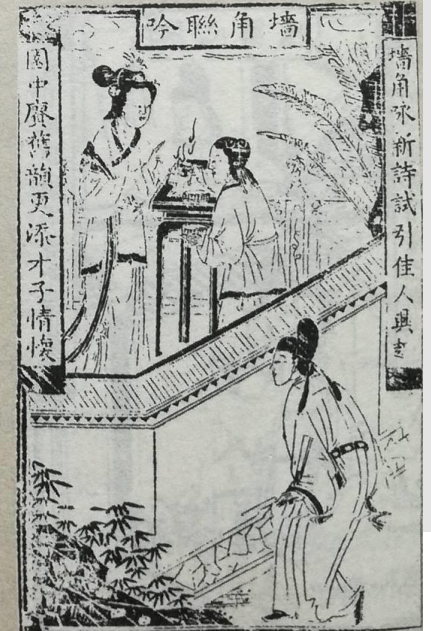 墙角聯吟
墙角咏新詩試引佳人興
園中賡舊韻更添才子情懷